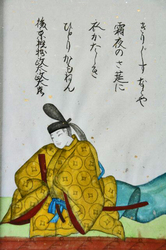 きりぎりすなくや
霜夜のさ莚に
衣かたしき
ひとりかもねん
後京極摂政太政大臣